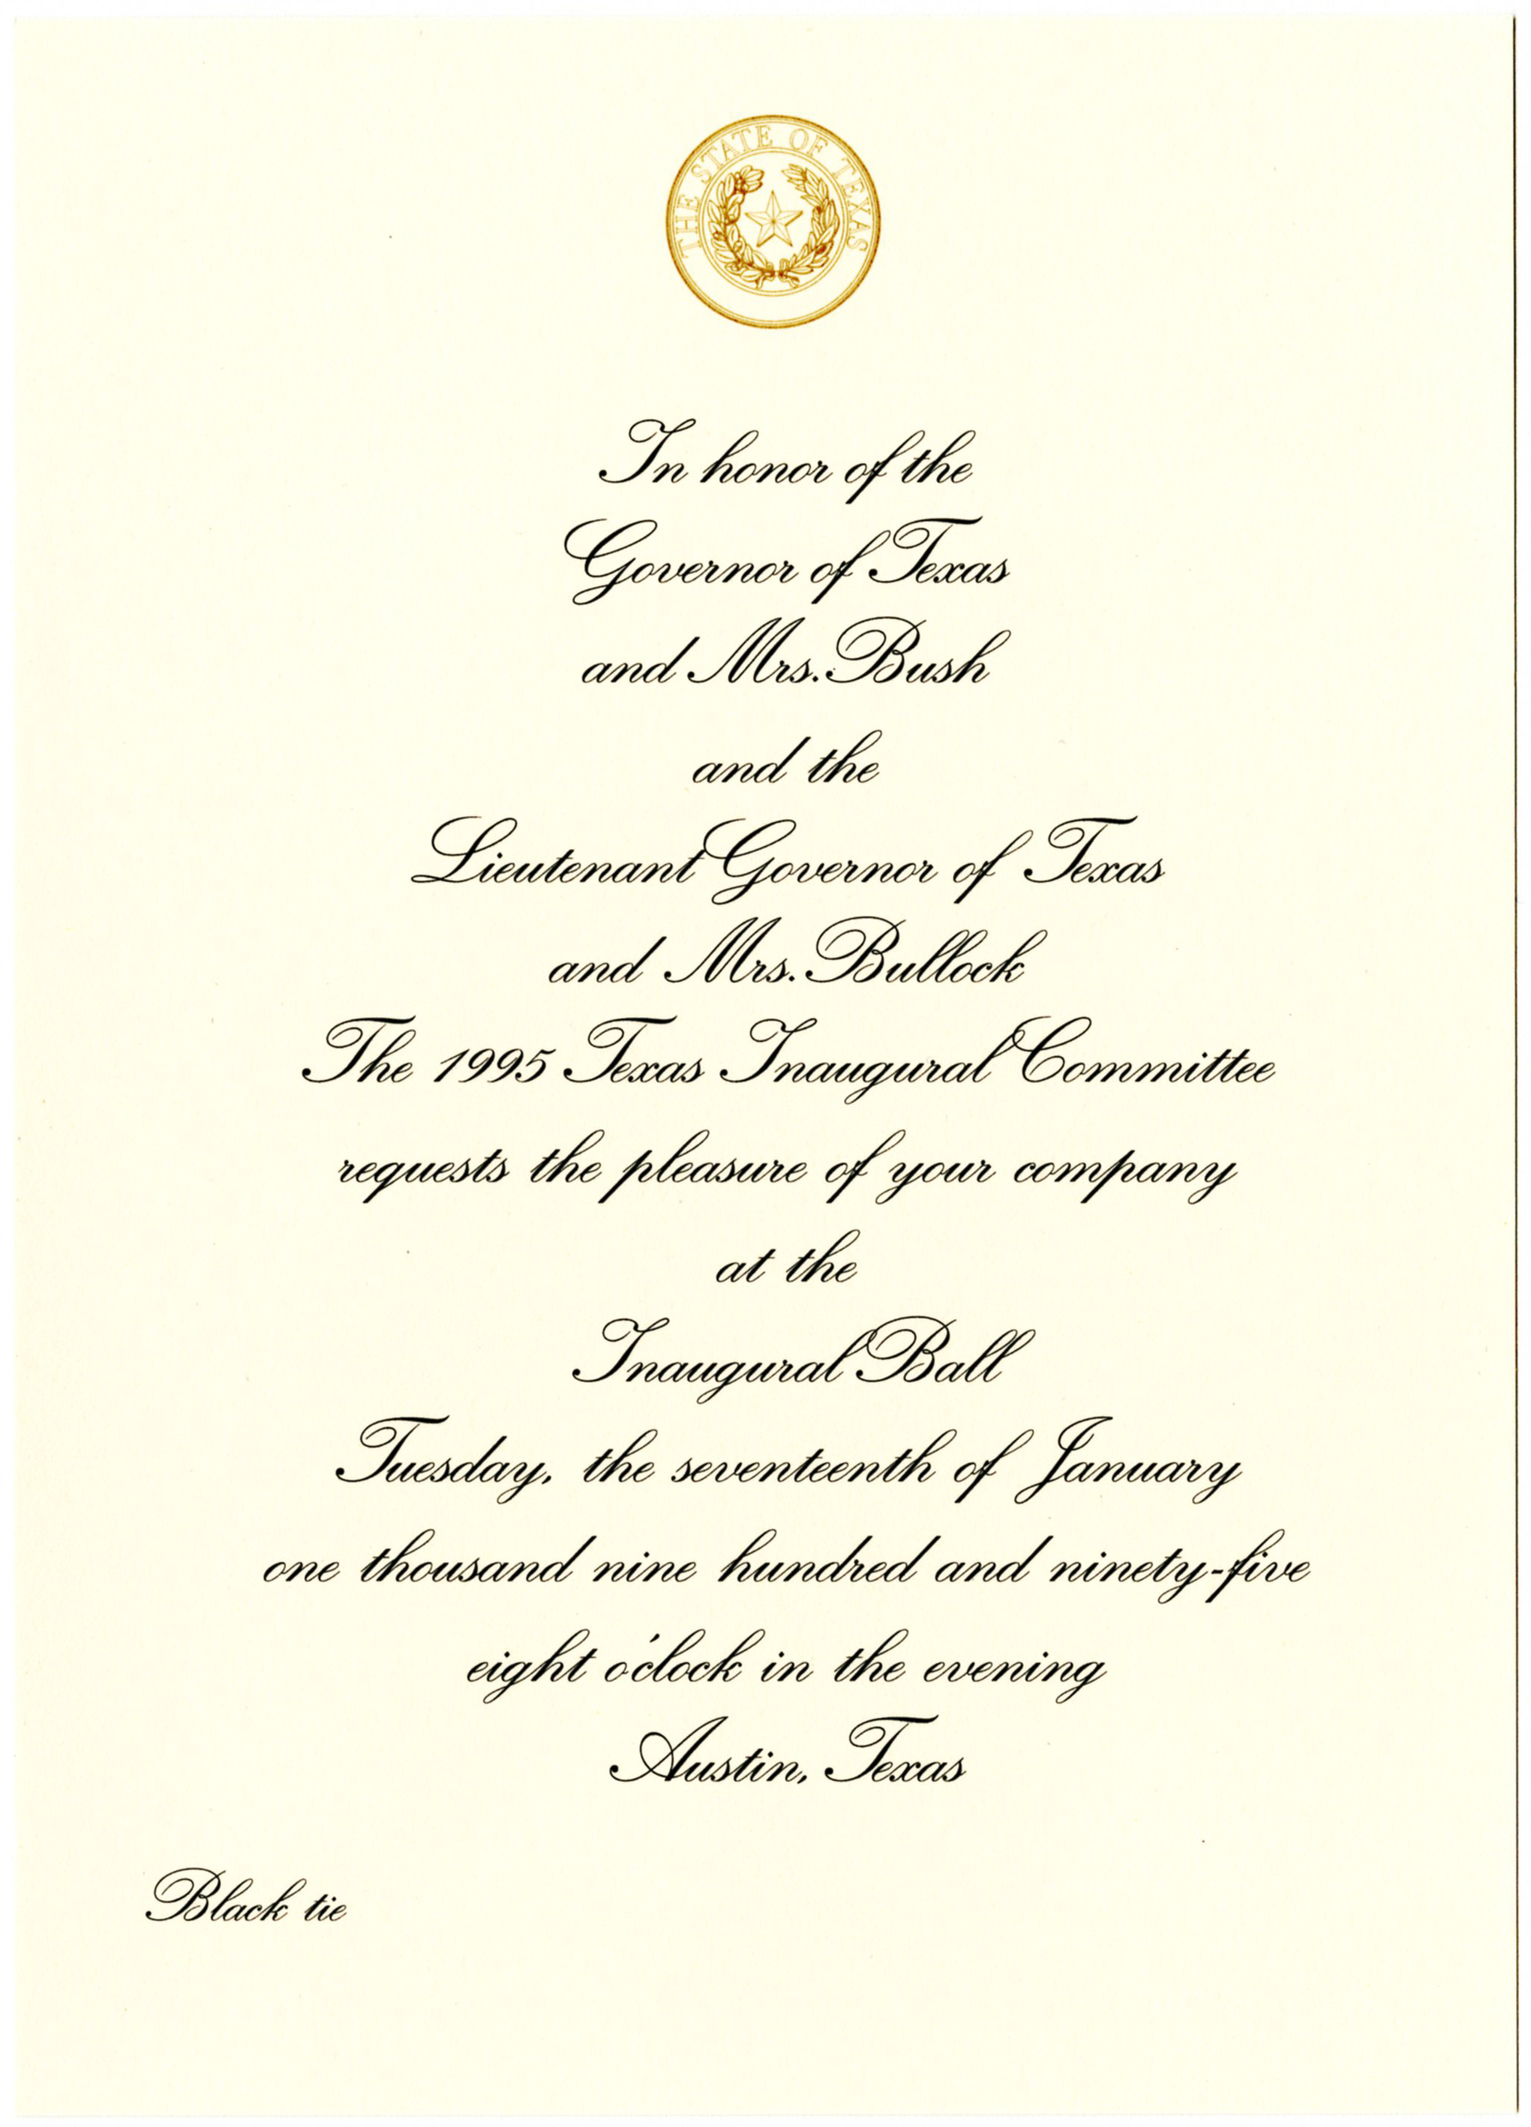 THE STATE OF TEXAS
In honor of the
Governor of Texas
and Mrs. Bush
and the
Lieutenant Governor of Texas
and Mrs. Bullock
The 1995 Texas Inaugural Committee
requests the pleasure of your company
at the
Inaugural Ball
Tuesday, the seventeenth of January
one thousand nine hundred and ninety-five
eight o'clock in the evening
Austin, Texas
Black tie